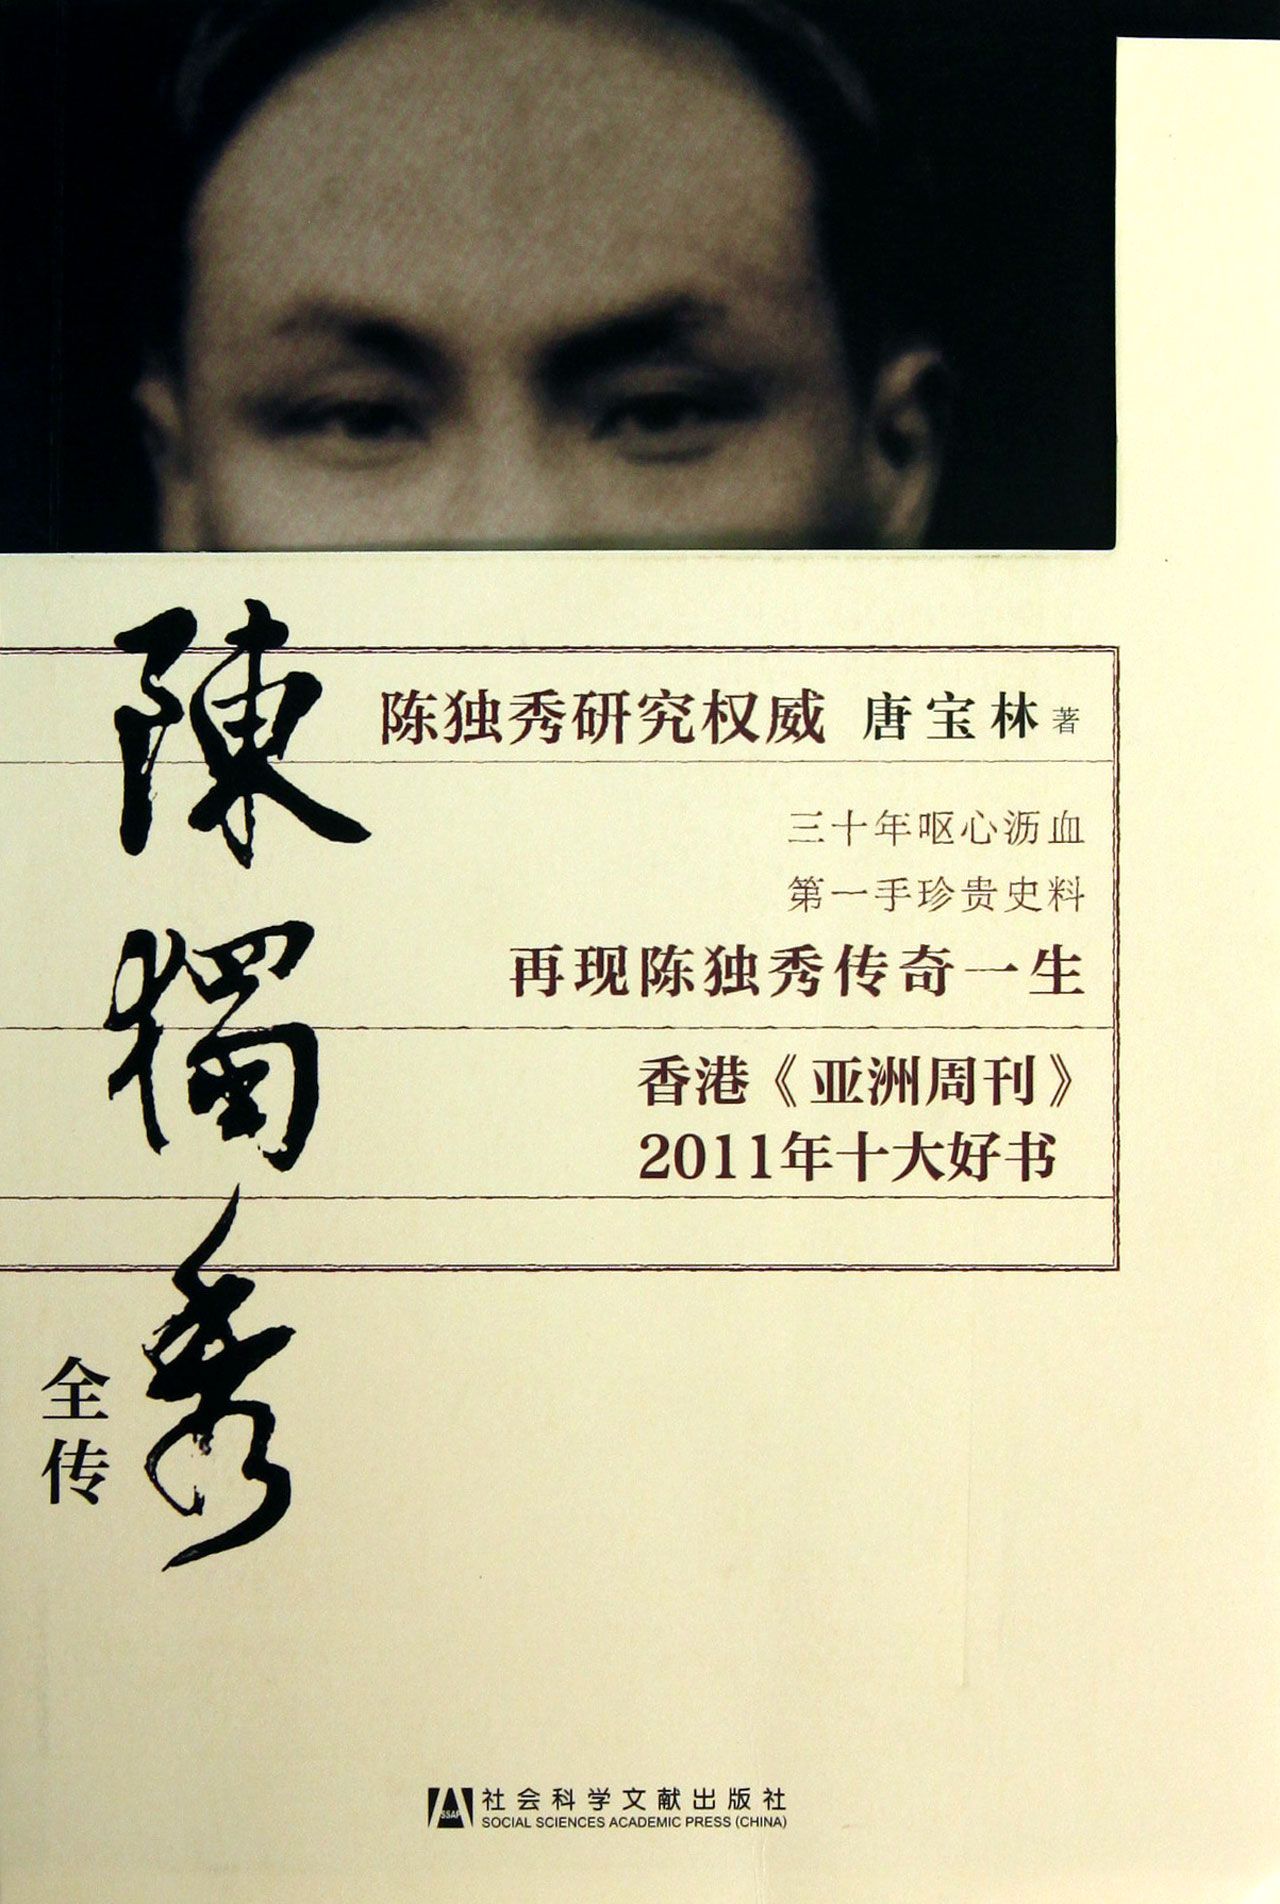 陳獨秀
全传
陈独秀研究权威 唐宝林 著
三十年呕心沥血
第一手珍贵史料
再现陈独秀传奇一生
香港《亚洲周刊》
2011年十大好书
SSAP
社会科学文献出版社
SOCIAL SCIENCES ACADEMIC PRESS (CHINA)